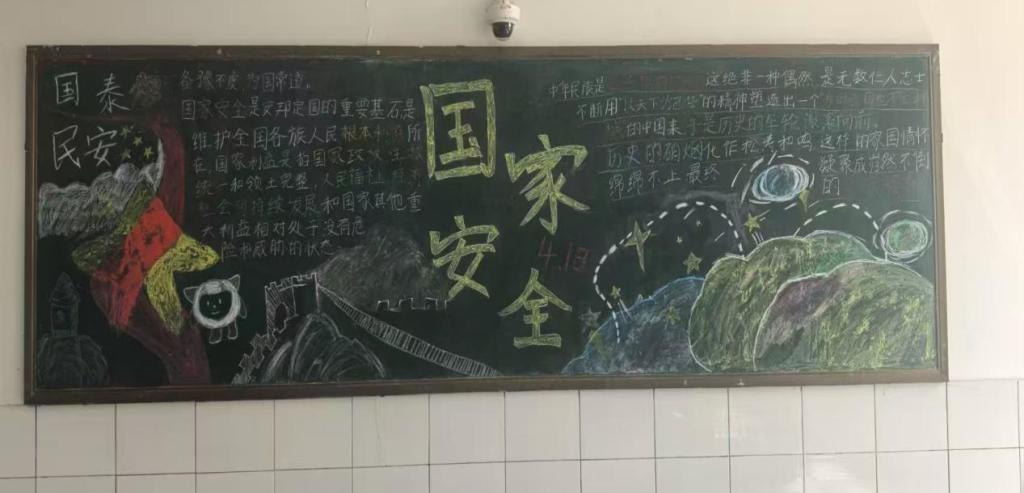 国泰
民安
备豫不虞 为国常道。
国家安全是安邦定国的重要基石是
维护全国各族人民根本利益所
在,国家利益是指国家政权主
统一和领土完整,人民福祉经济
社会可持续发展和国家其他重
大利益相对处于没有危
险和威胁的状态
国家
安全
4.18
中华民族是 这绝非一种偶然 是无数仁人志士
不断用以天下为己任的精神塑造出一个
的中国 于是历史的车轮滚滚向前
历史的硝烟化作 和鸣 这样的家国情怀
绵绵不 最终 凝聚成
的